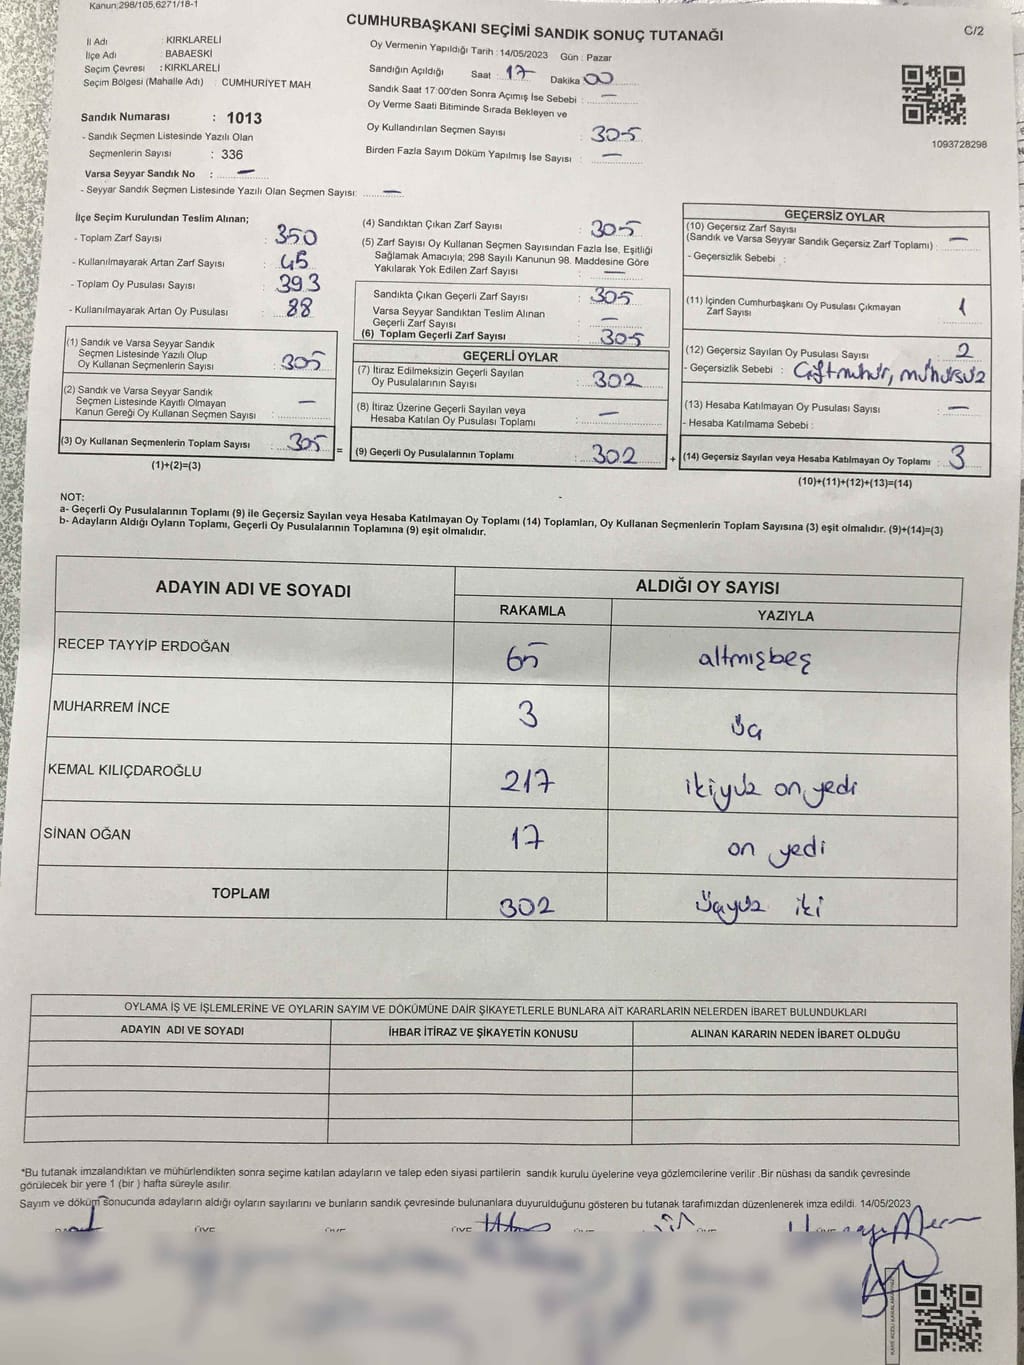 Kanun;298/105,6271/18-1
CUMHURBAŞKANI SEÇİMİ SANDIK SONUÇ TUTANAĞI
C/2
İl Adı : KIRKLARELİ
İlçe Adı : BABAESKİ
Seçim Çevresi : KIRKLARELİ
Seçim Bölgesi (Mahalle Adı) : CUMHURİYET MAH
Sandık Numarası : 1013
- Sandık Seçmen Listesinde Yazılı Olan
Seçmenlerin Sayısı : 336
Varsa Seyyar Sandık No : —
- Seyyar Sandık Seçmen Listesinde Yazılı Olan Seçmen Sayısı: —
Oy Vermenin Yapıldığı Tarih : 14/05/2023 Gün : Pazar
Sandığın Açıldığı Saat 17 Dakika 00
Sandık Saat 17:00'den Sonra Açımış İse Sebebi : —
Oy Verme Saati Bitiminde Sırada Bekleyen ve
Oy Kullandırılan Seçmen Sayısı : 305
Birden Fazla Sayım Döküm Yapılmış İse Sayısı : —
1093728298
İlçe Seçim Kurulundan Teslim Alınan;
- Toplam Zarf Sayısı : 350
- Kullanılmayarak Artan Zarf Sayısı : 45
- Toplam Oy Pusulası Sayısı : 393
- Kullanılmayarak Artan Oy Pusulası : 88
(1) Sandık ve Varsa Seyyar Sandık
Seçmen Listesinde Yazılı Olup
Oy Kullanan Seçmenlerin Sayısı : 305
(2) Sandık ve Varsa Seyyar Sandık
Seçmen Listesinde Kayıtlı Olmayan
Kanun Gereği Oy Kullanan Seçmen Sayısı : —
(3) Oy Kullanan Seçmenlerin Toplam Sayısı : 305 =
(1)+(2)=(3)
(4) Sandıktan Çıkan Zarf Sayısı : 305
(5) Zarf Sayısı Oy Kullanan Seçmen Sayısından Fazla İse, Eşitliği
Sağlamak Amacıyla; 298 Sayılı Kanunun 98. Maddesine Göre
Yakılarak Yok Edilen Zarf Sayısı : —
Sandıkta Çıkan Geçerli Zarf Sayısı : 305
Varsa Seyyar Sandıktan Teslim Alınan
Geçerli Zarf Sayısı : —
(6) Toplam Geçerli Zarf Sayısı : 305
GEÇERLİ OYLAR
(7) İtiraz Edilmeksizin Geçerli Sayılan
Oy Pusulalarının Sayısı : 302
(8) İtiraz Üzerine Geçerli Sayılan veya
Hesaba Katılan Oy Pusulası Toplamı : —
(9) Geçerli Oy Pusulalarının Toplamı : 302 +
GEÇERSİZ OYLAR
(10) Geçersiz Zarf Sayısı
(Sandık ve Varsa Seyyar Sandık Geçersiz Zarf Toplamı) : —
- Geçersizlik Sebebi :
(11) İçinden Cumhurbaşkanı Oy Pusulası Çıkmayan
Zarf Sayısı : 1
(12) Geçersiz Sayılan Oy Pusulası Sayısı : 2
- Geçersizlik Sebebi : Çiftmühür, mühürsüz
(13) Hesaba Katılmayan Oy Pusulası Sayısı : —
- Hesaba Katılmama Sebebi :
(14) Geçersiz Sayılan veya Hesaba Katılmayan Oy Toplamı : 3
(10)+(11)+(12)+(13)=(14)
NOT:
a- Geçerli Oy Pusulalarının Toplamı (9) ile Geçersiz Sayılan veya Hesaba Katılmayan Oy Toplamı (14) Toplamları, Oy Kullanan Seçmenlerin Toplam Sayısına (3) eşit olmalıdır. (9)+(14)=(3)
b- Adayların Aldığı Oyların Toplamı, Geçerli Oy Pusulalarının Toplamına (9) eşit olmalıdır.
ADAYIN ADI VE SOYADI ALDIĞI OY SAYISI
RAKAMLA YAZIYLA
RECEP TAYYİP ERDOĞAN 65 altmışbeş
MUHARREM İNCE 3 üç
KEMAL KILIÇDAROĞLU 217 ikiyüz on yedi
SİNAN OĞAN 17 on yedi
TOPLAM 302 üçyüz iki
OYLAMA İŞ VE İŞLEMLERİNE VE OYLARIN SAYIM VE DÖKÜMÜNE DAİR ŞİKAYETLERLE BUNLARA AİT KARARLARIN NELERDEN İBARET BULUNDUKLARI
ADAYIN ADI VE SOYADI İHBAR İTİRAZ VE ŞİKAYETİN KONUSU ALINAN KARARIN NEDEN İBARET OLDUĞU
*Bu tutanak imzalandıktan ve mühürlendikten sonra seçime katılan adayların ve talep eden siyasi partilerin sandık kurulu üyelerine veya gözlemcilerine verilir .Bir nüshası da sandık çevresinde
görülecek bir yere 1 (bir ) hafta süreyle asılır.
Sayım ve döküm sonucunda adayların aldığı oyların sayılarını ve bunların sandık çevresinde bulunanlara duyurulduğunu gösteren bu tutanak tarafımızdan düzenlenerek imza edildi. 14/05/2023